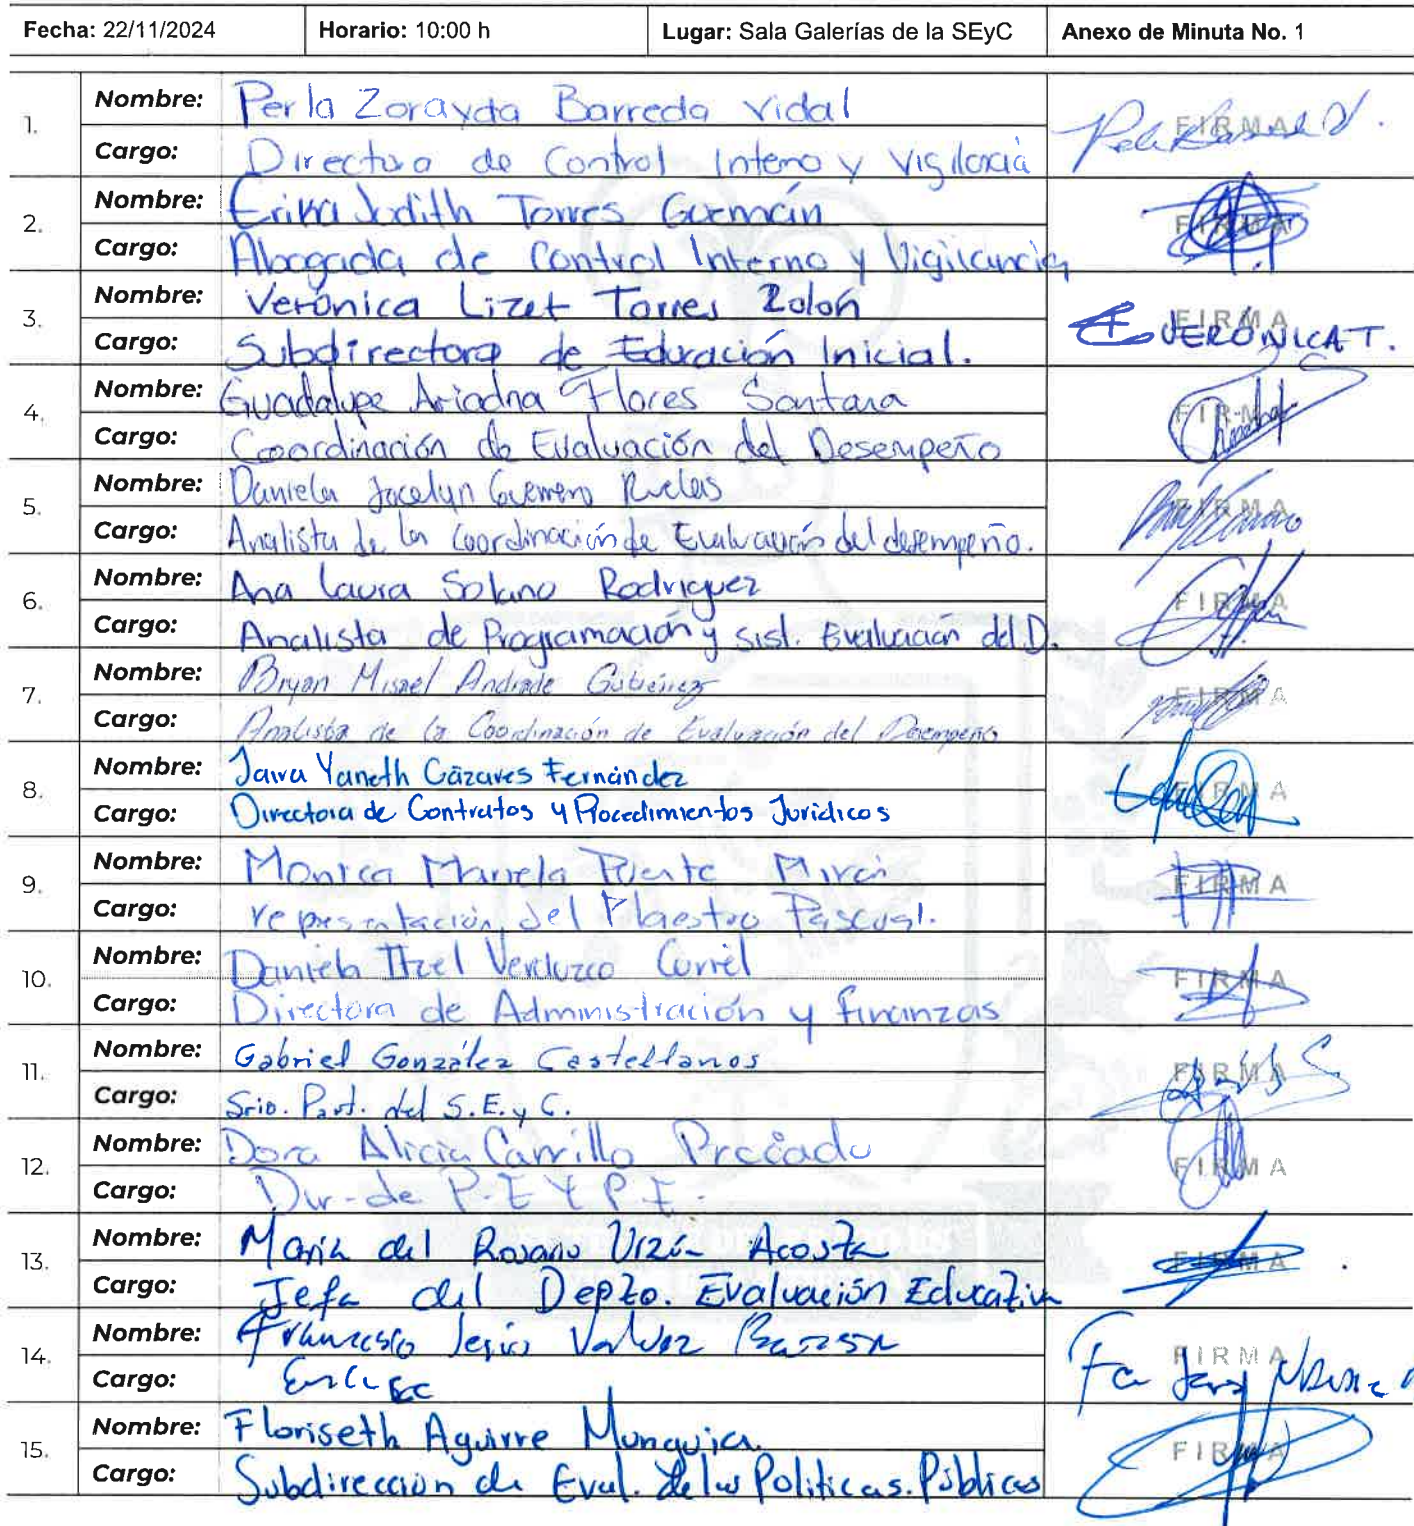 Fecha: 22/11/2024 Horario: 10:00 h Lugar: Sala Galerías de la SEyC Anexo de Minuta No. 1
1. Nombre: Perla Zorayda Barreda Vidal FIRMA
Cargo: Directora de Control Interno y Vigilancia
2. Nombre: Erika Judith Torres Guzmán FIRMA
Cargo: Abogada de Control Interno y Vigilancia
3. Nombre: Verónica Lizet Torres Zolón FIRMA VERÓNICA T.
Cargo: Subdirectora de Educación Inicial.
4. Nombre: Guadalupe Ariadna Flores Santana FIRMA
Cargo: Coordinación de Evaluación del Desempeño
5. Nombre: Daniela Jocelyn Guerrero Ruelas FIRMA
Cargo: Analista de la Coordinación de Evaluación del desempeño.
6. Nombre: Ana Laura Solano Rodriguez FIRMA
Cargo: Analista de Programación y sist. Evaluación del D.
7. Nombre: Bryan Misael Andrade Gutiérrez FIRMA
Cargo: Analista de la Coordinación de Evaluación del Desempeño
8. Nombre: Yaneth Cázares Fernández FIRMA
Cargo: Directora de Contratos y Procedimientos Jurídicos
9. Nombre: Monica Mariela Puente FIRMA
Cargo: representación del Maestro Pascual.
10. Nombre: Daniela Itzel Verduzco Curiel FIRMA
Cargo: Directora de Administración y finanzas
11. Nombre: Gabriel González Castellanos FIRMA
Cargo: Srio. Part. del S.E.y C.
12. Nombre: Dora Alicia Carrillo Preciado FIRMA
Cargo: Dir. de P.E Y P.E.
13. Nombre: María del Rosario Acosta FIRMA
Cargo: Jefa del Depto. Evaluación Educativa
14. Nombre: Francisco Jesús FIRMA
Cargo:
15. Nombre: Floriseth Aguirre Munguia FIRMA
Cargo: Subdirección de Eval. de las Politicas. Públicas